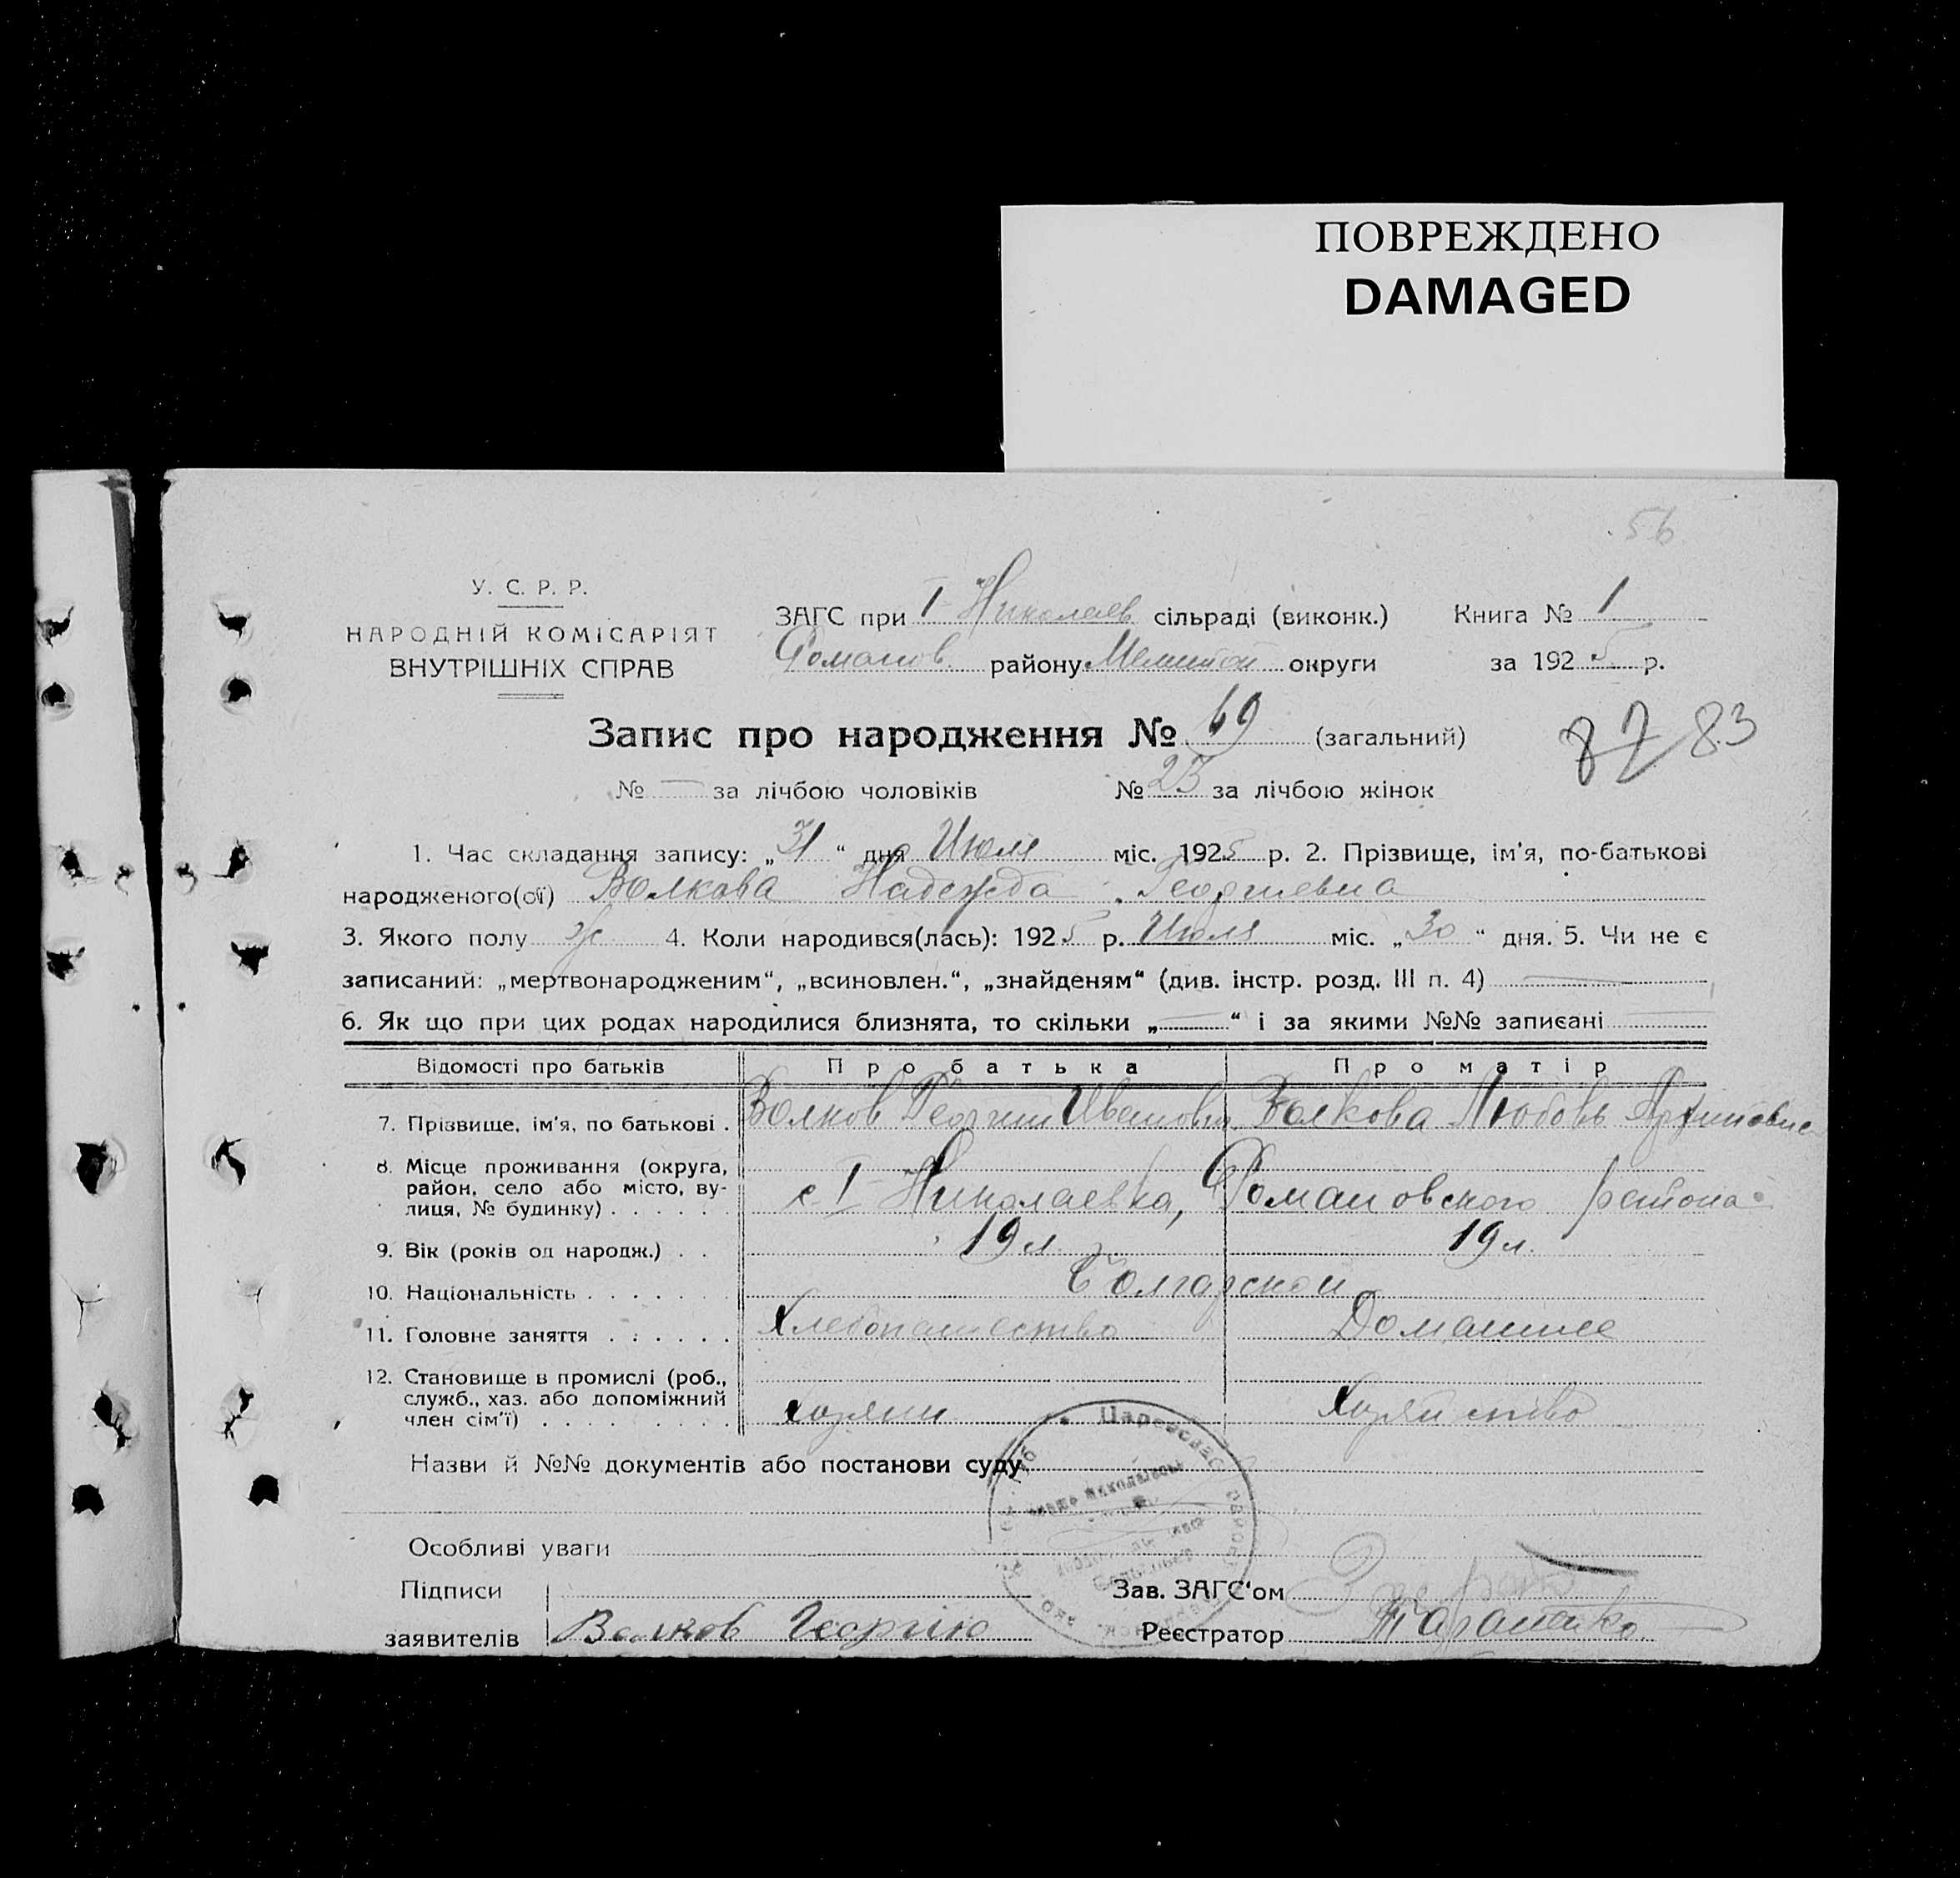 ПОВРЕЖДЕНО
DAMAGED
56
У. С. Р. Р.
НАРОДНІЙ КОМІСАРІЯТ
ВНУТРІШНІХ СПРАВ
ЗАГС при І-Николаев сільраді (виконк.) Книга № 1
Романов. району Мелитоп округи за 1925 р.
Запис про народження № 69 (загальний) 82 83
№ — за лічбою чоловіків № 23 за лічбою жінок
1. Час складання запису: „31“ дня Июля міс. 1925 р. 2. Прізвище, ім'я, по-батькові
народженого(ої) Волкова Надежда Георгиевна
3. Якого полу ж 4. Коли народився(лась): 1925 р. Июля міс. „30“ дня. 5. Чи не є
записаний: „мертвонародженим“, „всиновлен.“, „знайденям“ (див. інстр. розд. III п. 4) —
6. Як що при цих родах народилися близнята, то скільки „—“ і за якими №№ записані —
Відомості про батьків Про батька Про матір
7. Прізвище, ім'я, по батькові . Волков Георгий Иванович Волкова Любовь Архиповна
8. Місце проживання (округа,
район, село або місто, ву-
лиця, № будинку) . . . . . . с І-Николаевка, Романовского района
9. Вік (років од народж.) . . 19 л. 19 л.
10. Національність . . . . . . . Болгарской
11. Головне заняття . . . . . . Хлебопашество Домашнее
12. Становище в промислі (роб.,
служб., хаз. або допоміжний
член сім'ї) . . . . . . . . . хозяин Хозяйство
Назви й №№ документів або постанови суду
Особливі уваги
Підписи Зав. ЗАГС'ом
заявителів Волков Георгію Реєстратор